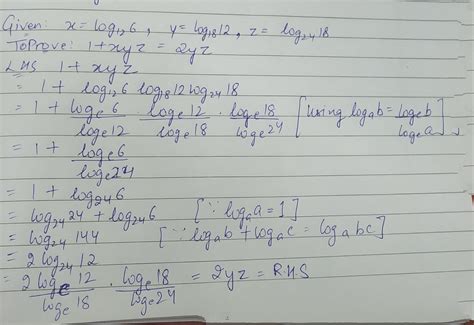 Given: x = log₁₂6 , y = log₁₈12 , z = log₂₄18
ToProve: 1+xyz = 2yz
LHS 1 + xyz
= 1 + log₁₂6 log₁₈12 log₂₄18
= 1 + logₑ6/logₑ12 logₑ12/logₑ18 · logₑ18/logₑ24 [using logₐb = logₑb/logₑa]
= 1 + logₑ6/logₑ24
= 1 + log₂₄6
= log₂₄24 + log₂₄6 [∵ logₐa = 1]
= log₂₄144 [∵ logₐb + logₐc = logₐbc]
= 2log₂₄12
= 2logₑ12/logₑ18 · logₑ18/logₑ24 = 2yz = R.H.S